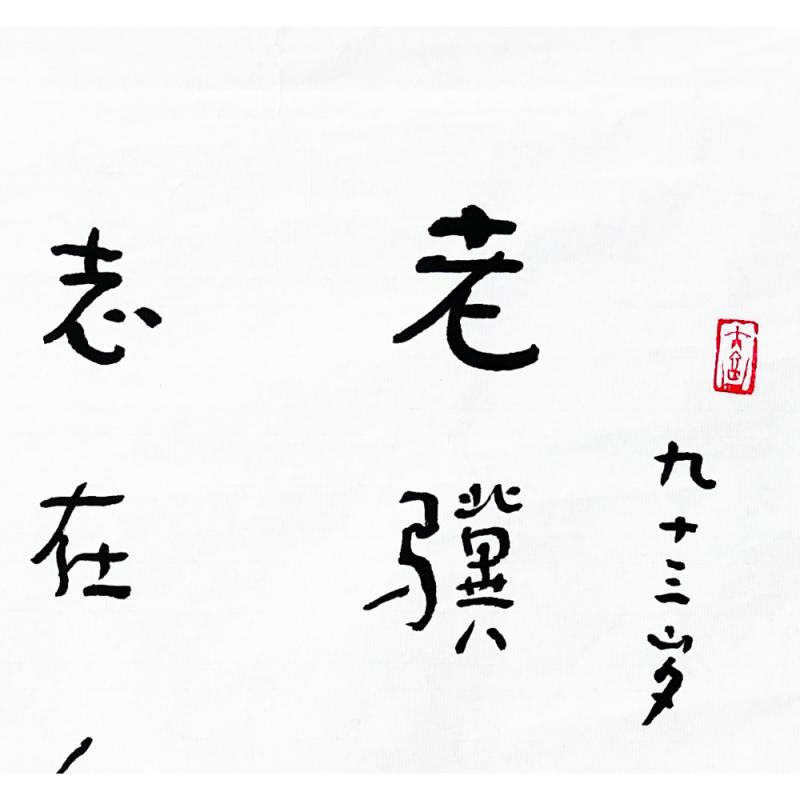 九十三岁
老骥
志在